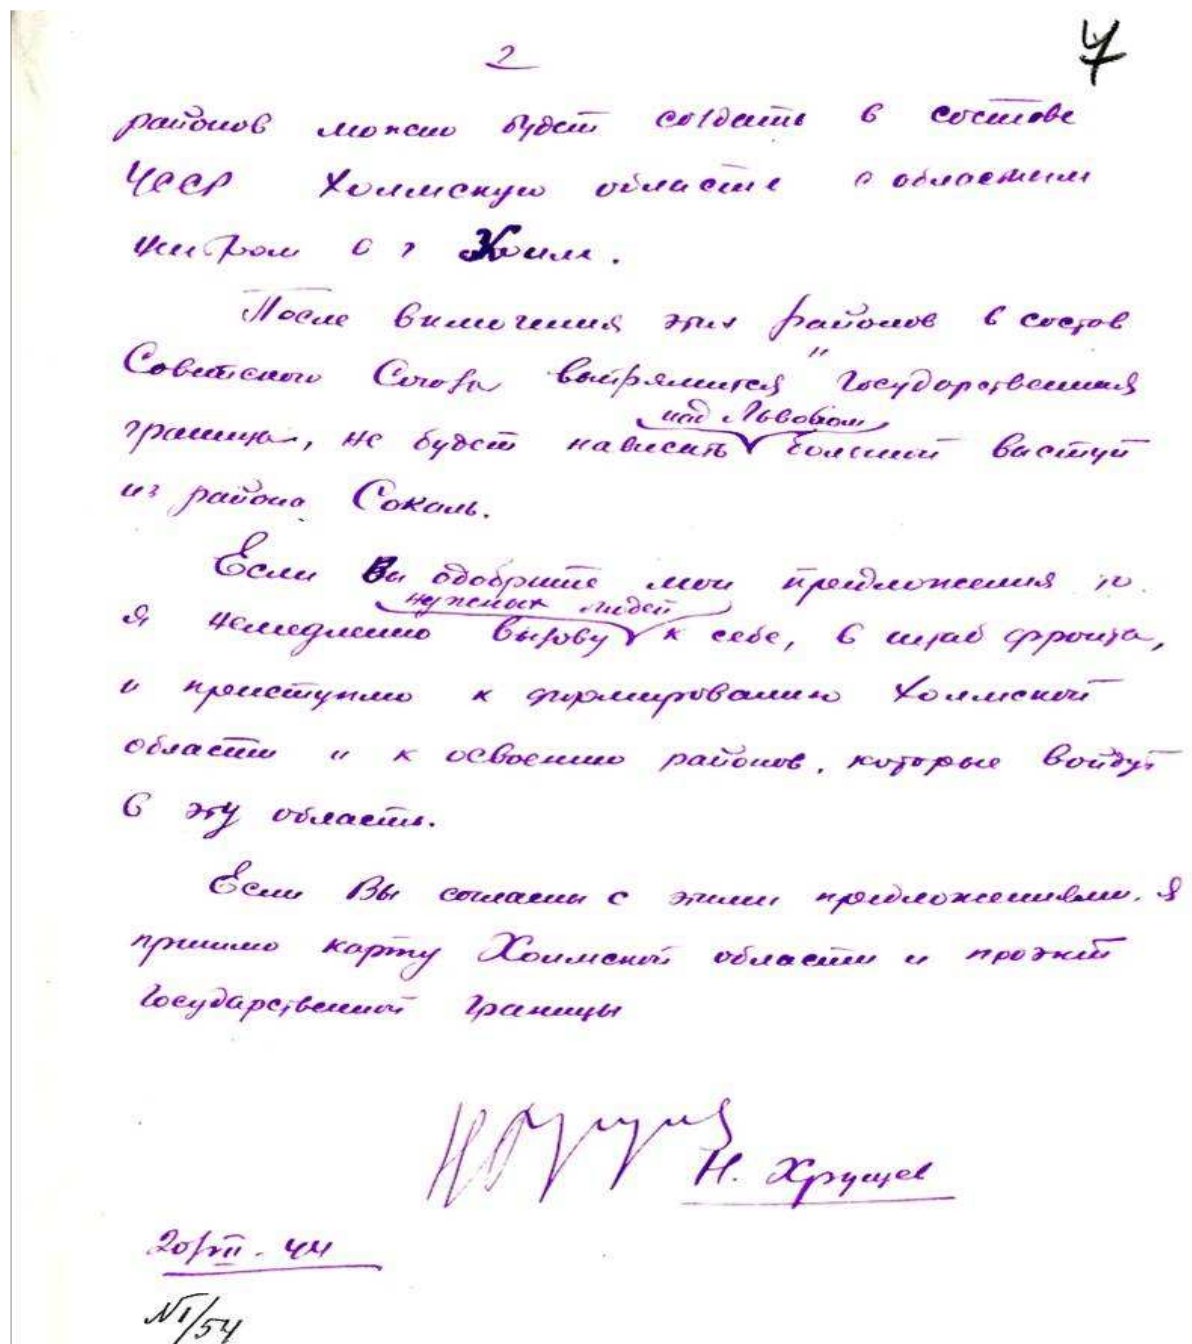 2
7
районов можно будет создать в составе
УССР Холмскую область с областным
центром в г Холм.
После включения этих районов в состав
Советского Союза выпрямится государственная
над Львовом
граница, не будет нависать большой выступ
из района Сокаль.
Если Вы одобрите мои предложения то
нужных людей
я немедленно вызову к себе, в штаб фронта,
и приступлю к формированию Холмской
области и к освоению районов, которые войдут
в эту область.
Если Вы согласны с этими предложениями, я
пришлю карту Холмской области и проэкт
государственной границы
Н. Хрущев
20/VII. 44
№1/54